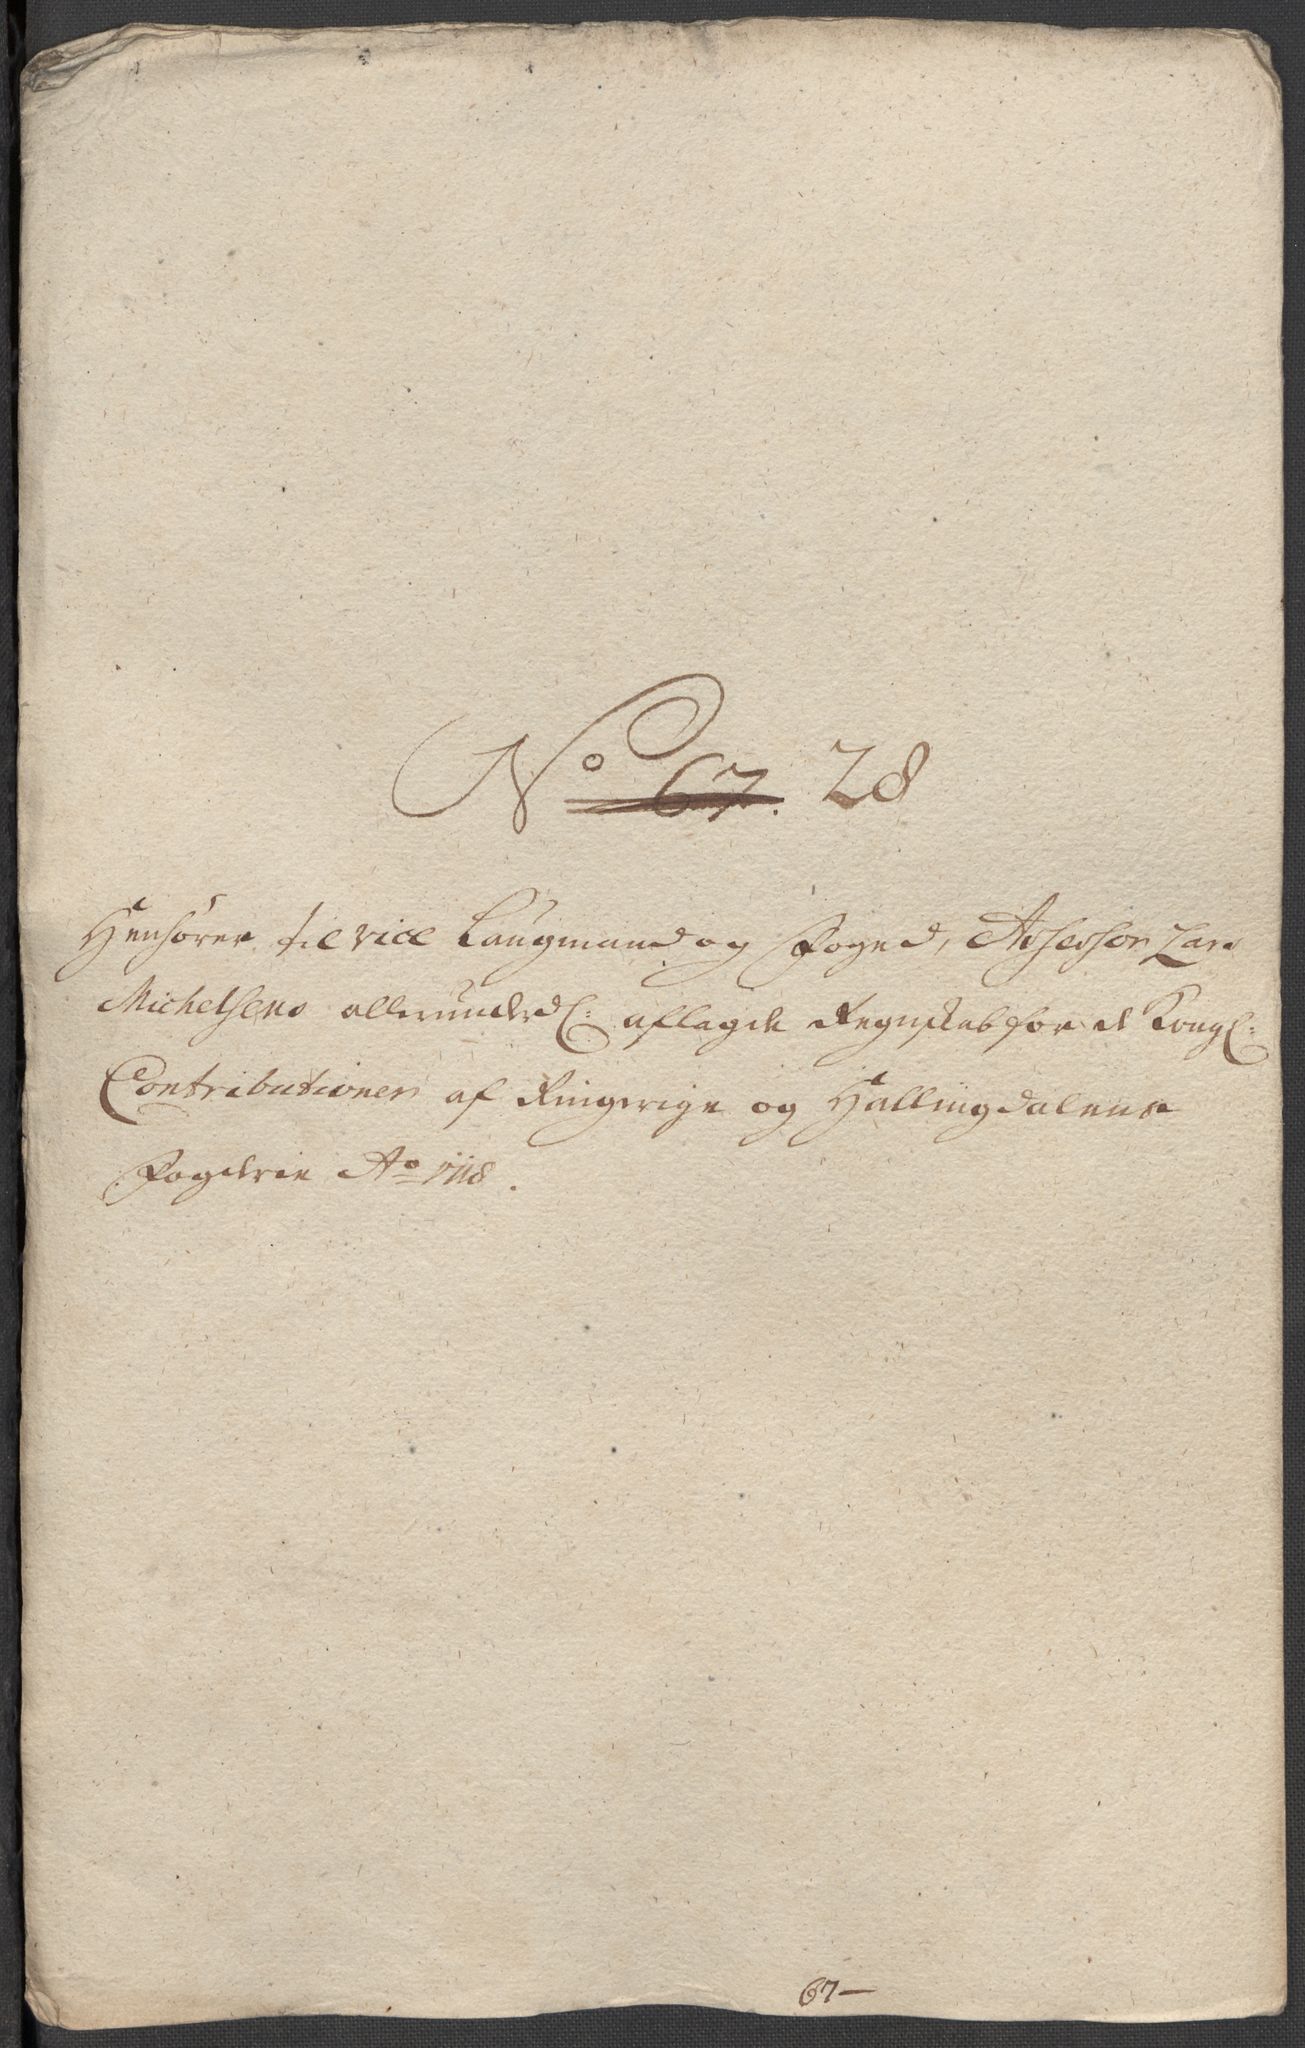 No 67. 28
Henhører til vice Laugmand og Foged, Assessor Lars
Michelsens allerunderdl: aflagde Regnskab for de Kongl:
Contributioner af Ringerige og Hallingdalens
Fogderie Ao 1718.
67—